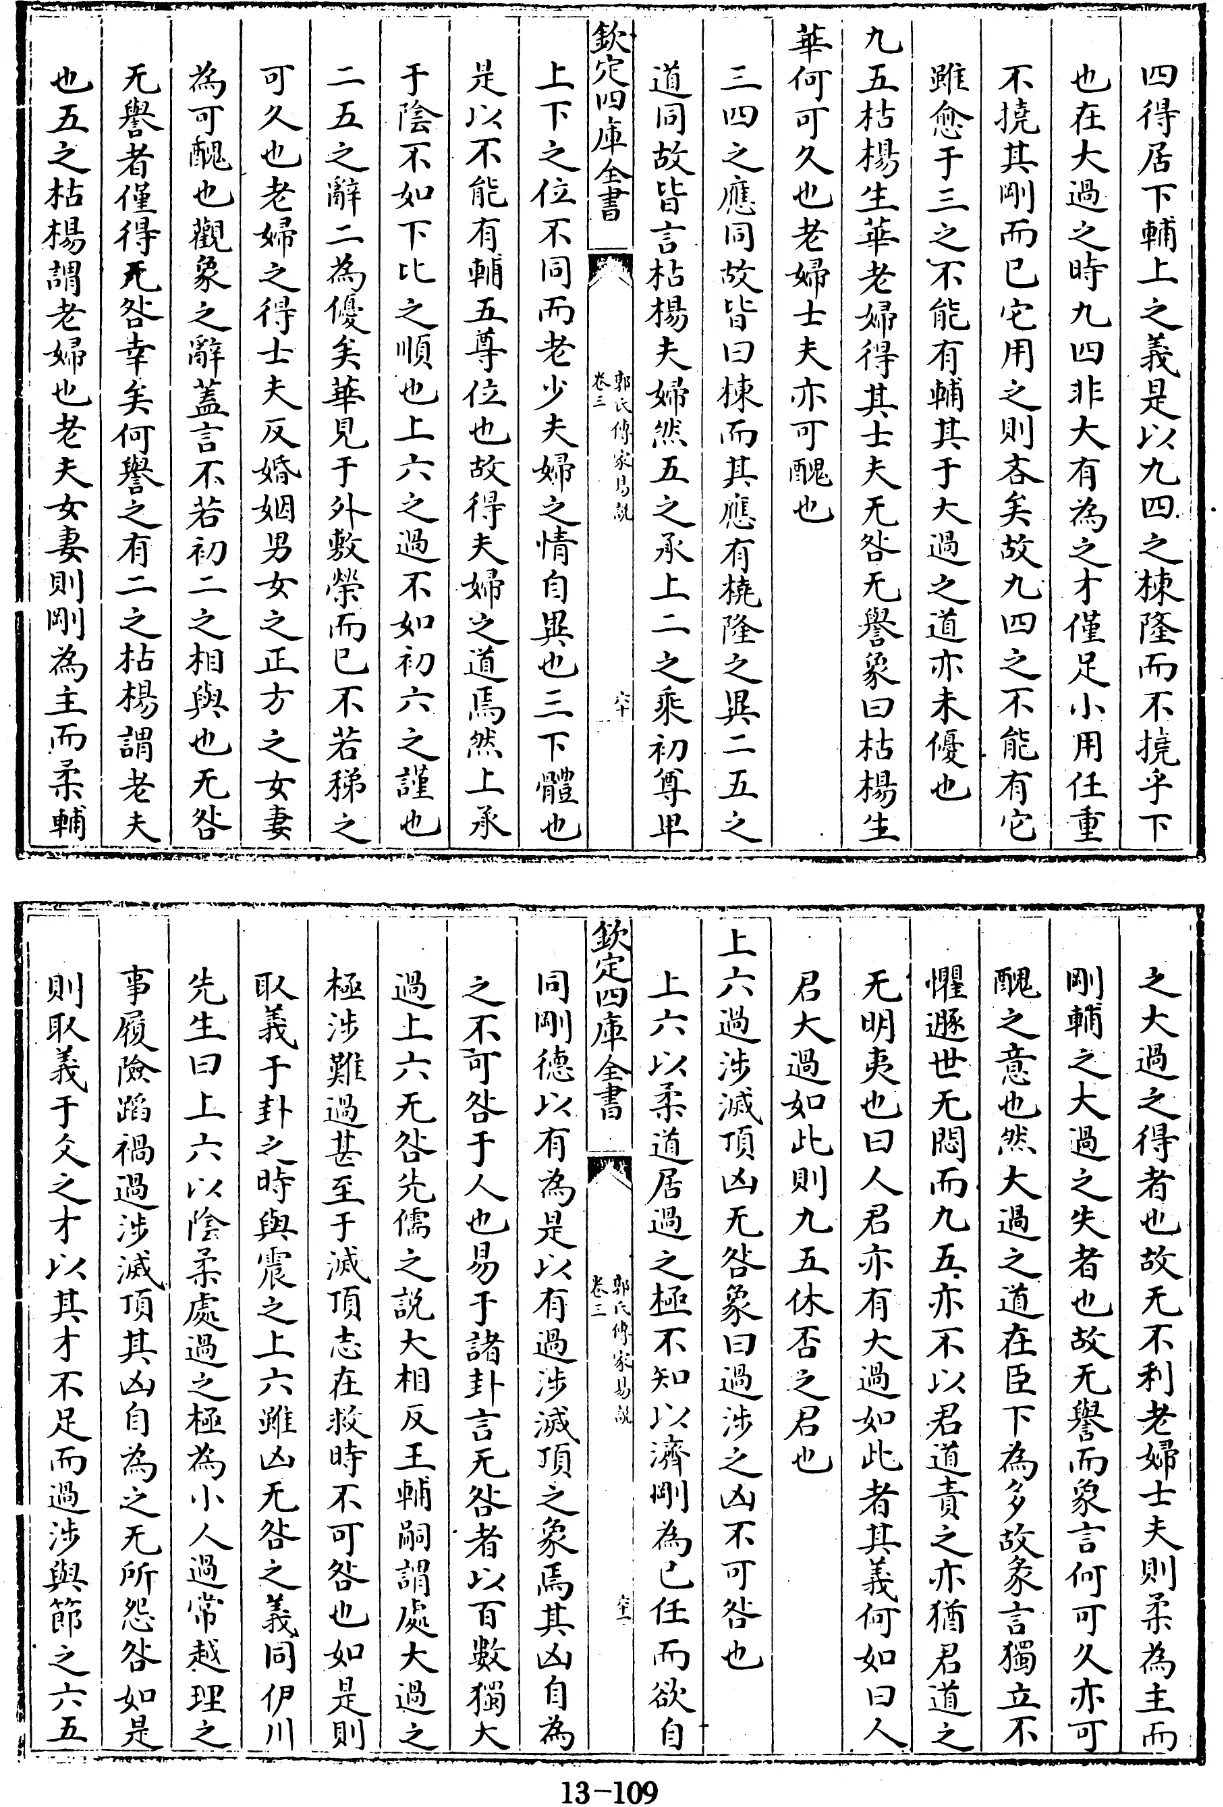 四得居下輔上之義是以九四之棟隆而不撓乎下
也在大過之時九四非大有為之才僅足小用任重
不撓其剛而已它用之則吝矣故九四之不能有它
雖愈于三之不能有輔其于大過之道亦未優也
九五枯楊生華老婦得其士夫无咎无譽象曰枯楊生
華何可久也老婦士夫亦可醜也
三四之應同故皆曰棟而其應有橈隆之異二五之
道同故皆言枯楊夫婦然五之承上二之乘初尊卑
欽定四庫全書
郭氏傳家易說
卷三
六十
上下之位不同而老少夫婦之情自異也三下體也
是以不能有輔五尊位也故得夫婦之道焉然上承
于陰不如下比之順也上六之過不如初六之謹也
二五之辭二為優矣華見于外敷榮而已不若稊之
可久也老婦之得士夫反婚姻男女之正方之女妻
為可醜也觀象之辭蓋言不若初二之相與也无咎
无譽者僅得无咎幸矣何譽之有二之枯楊謂老夫
也五之枯楊謂老婦也老夫女妻則剛為主而柔輔
之大過之得者也故无不利老婦士夫則柔為主而
剛輔之大過之失者也故无譽而象言何可久亦可
醜之意也然大過之道在臣下為多故象言獨立不
懼遯世无悶而九五亦不以君道責之亦猶君道之
无明夷也曰人君亦有大過如此者其義何如曰人
君大過如此則九五休否之君也
上六過涉滅頂凶无咎象曰過涉之凶不可咎也
上六以柔道居過之極不知以濟剛為己任而欲自
欽定四庫全書
郭氏傳家易說
卷三
六十一
同剛德以有為是以有過涉滅頂之象焉其凶自為
之不可咎于人也易于諸卦言无咎者以百數獨大
過上六无咎先儒之說大相反王輔嗣謂處大過之
極涉難過甚至于滅頂志在救時不可咎也如是則
取義于卦之時與震之上六雖凶无咎之義同伊川
先生曰上六以陰柔處過之極為小人過常越理之
事履險蹈禍過涉滅頂其凶自為之无所怨咎如是
則取義于爻之才以其才不足而過涉與節之六五
13-109